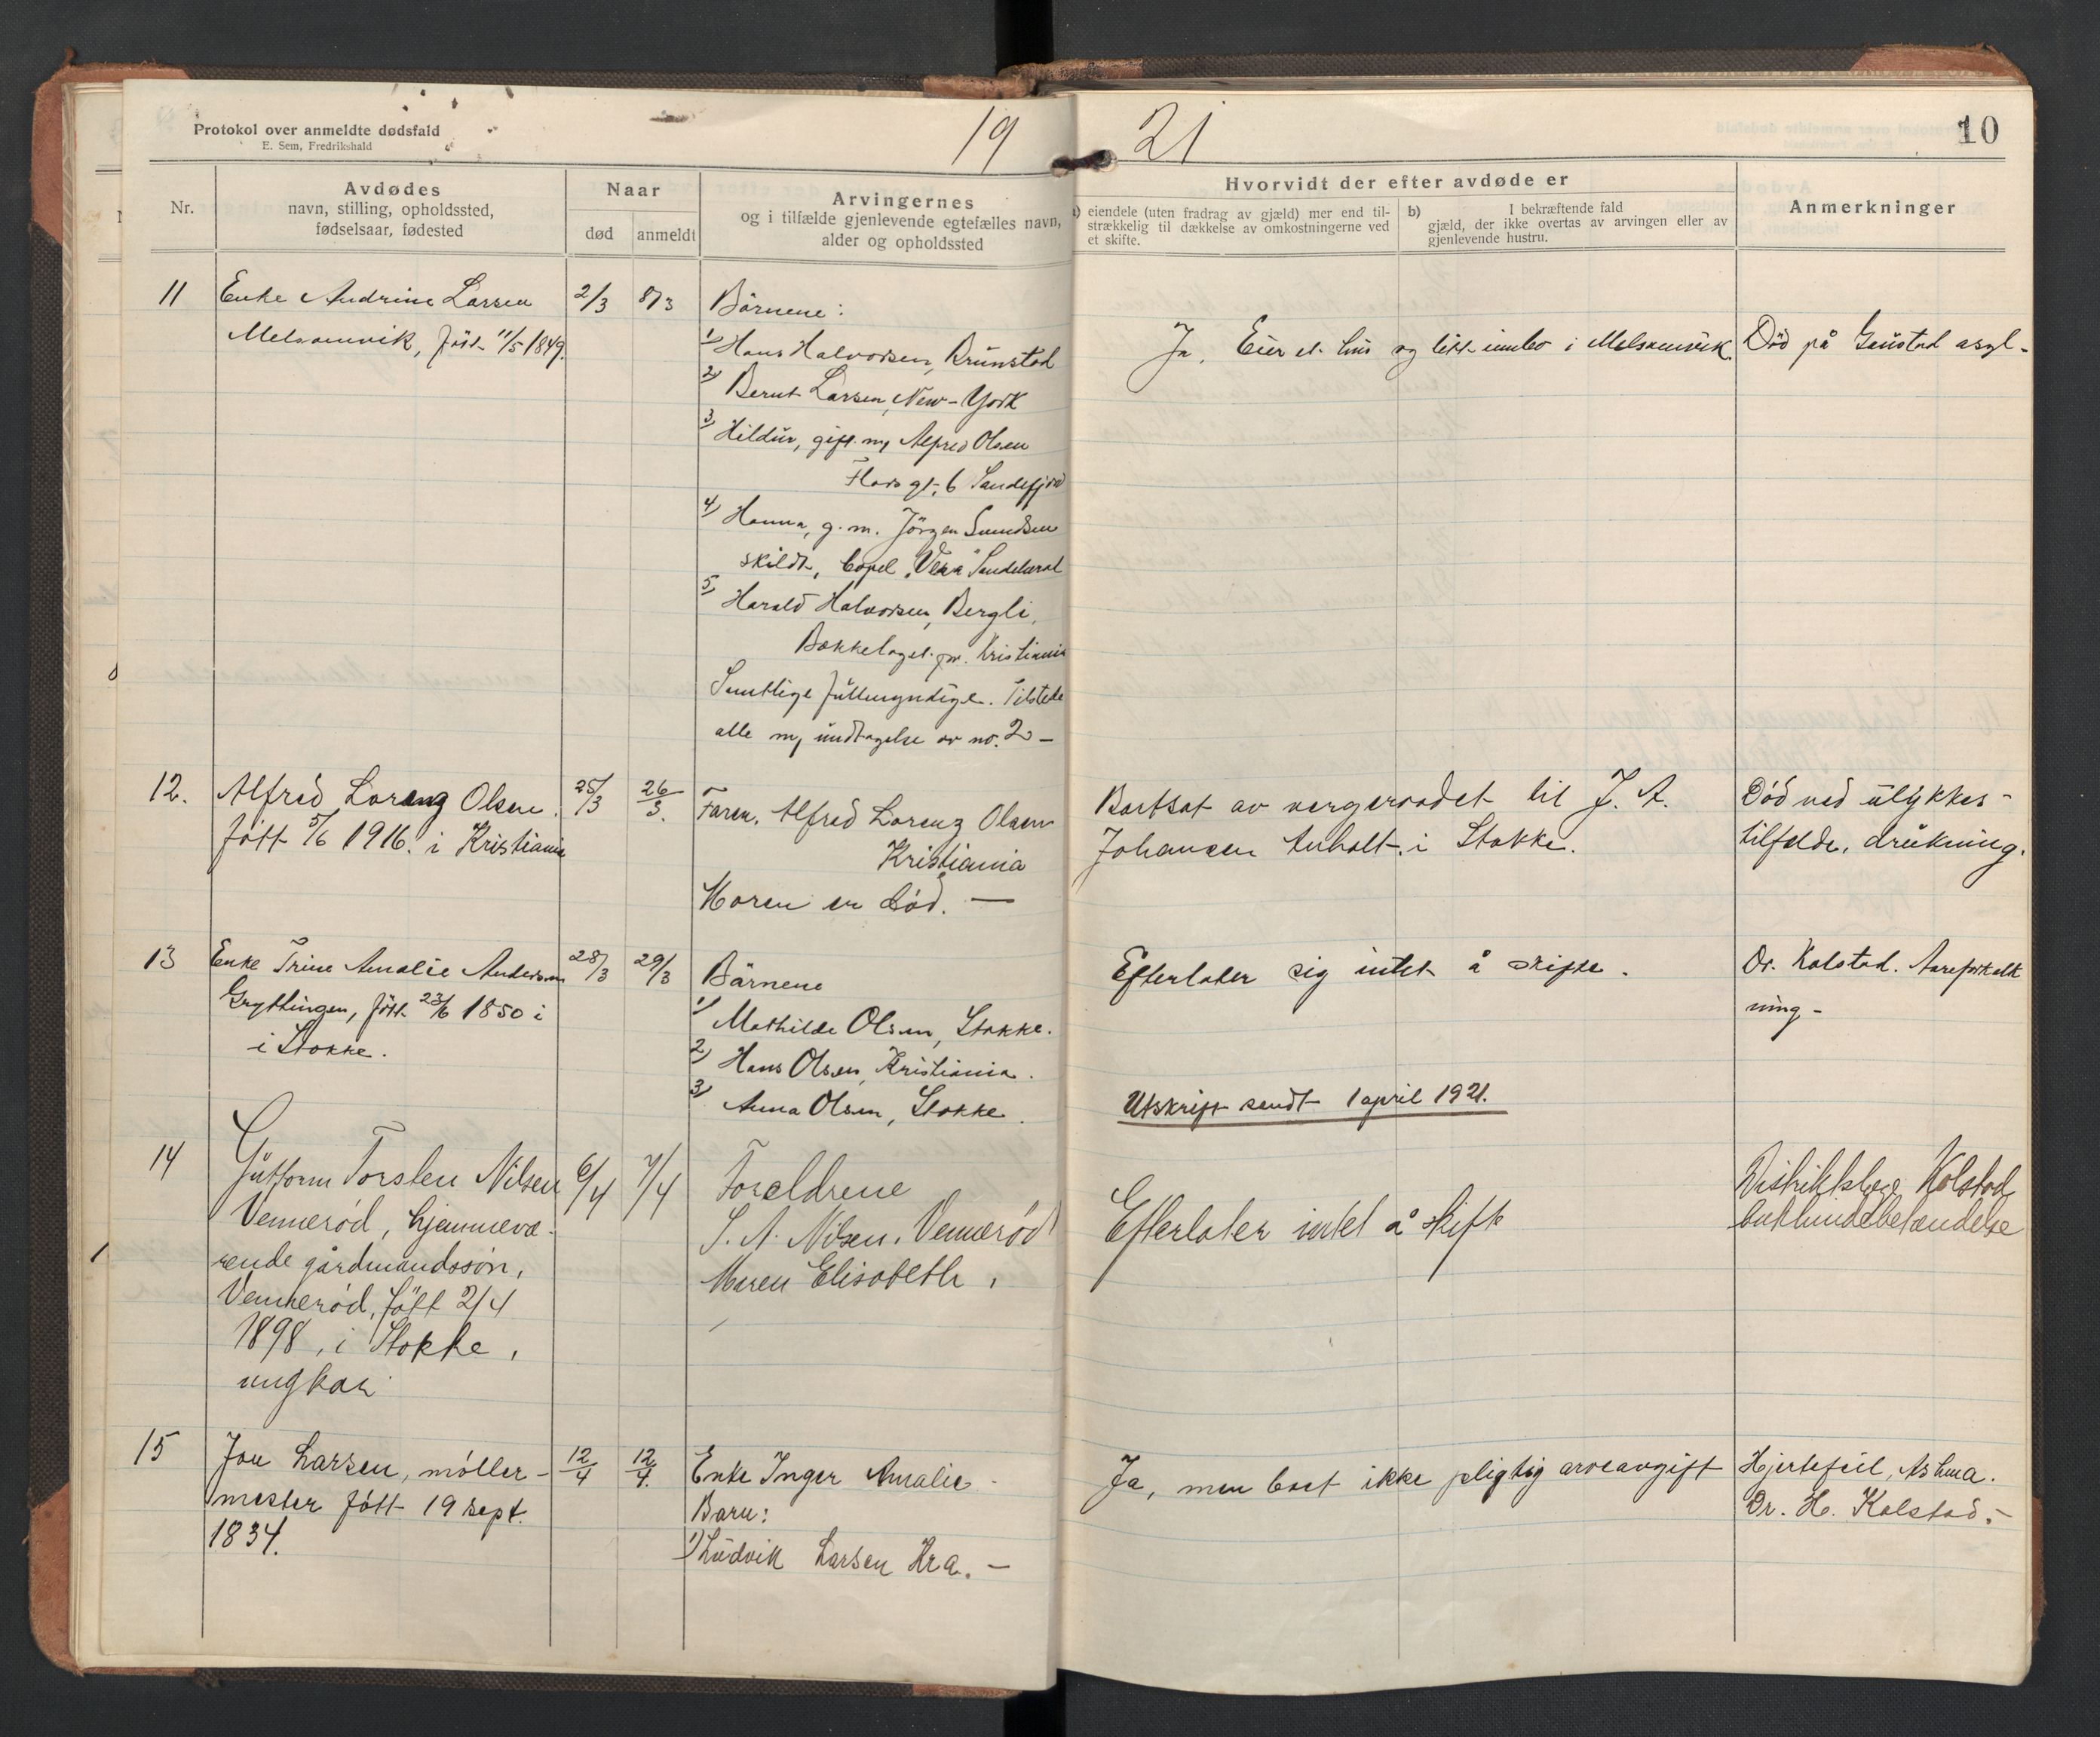 Protokol over anmeldte dødsfald
E. Sem, Fredrikshald
19
21
10
Nr.
Avdødes
navn, stilling, opholdssted,
fødselsaar, fødested
Naar
død
anmeldt
Arvingernes
og i tilfælde gjenlevende egtefælles navn,
alder og opholdssted
Hvorvidt der efter avdøde er
a) eiendele (uten fradrag av gjæld) mer end til-
strækkelig til dækkelse av omkostningerne ved
et skifte.
b) I bekræftende fald
gjæld, der ikke overtas av arvingen eller av
gjenlevende hustru.
Anmerkninger
11
Enke Andrine Larsen
Melsomvik, født 11/5 1849.
2/3
8/3
Børnene:
1) Hans Halvorsen, Brunstad
2) Bernt Larsen, New-York
3) Hildur, gift m/ Alfred Olsen
Flors gt. 6 Sandefjord
4) Hanna, g. m. Jörgen
skildt, "Vera"
5) Harald Halvorsen, Bergli,
Bækkelaget pr. Kristiania
Samtlige fuldmyndige. Tilstede
alle m/ undtagelse av no. 2 -
Ja, Eier et hus og litt innbo i Melsomvik.
Död på Gaustad asyl -
12.
Alfred Lorenz Olsen.
født 5/6 1916. i Kristiania
25/3
26/3.
Faren, Alfred Lorenz Olsen
Kristiania
Moren er død. —
Bortsat av vergeraadet til J. A.
Johansen Anholt i Stokke.
Død ved ulykkes-
tilfelde, drukning.
13
Enke Trine Amalie Andersen
Gryttingen, född 23/6 1850 i
i Stokke.
28/3
29/3
Børnene
1) Mathilde Olsen, Stokke.
2) Hans Olsen, Kristiania.
3) Anna Olsen, Stokke.
Efterlater sig intet å skifte.
Dr. Kolstad. Aareforkalk
ning -
Utskrift sendt 1 april 1921.
14
Guttorm Torslen Nilsen
Vennerød, hjemmevæ-
rende gårdmandssøn,
Vennerød, født 2/4
1898, i Stokke,
ungkar
6/4
7/4
Foreldrene
S. A. Nilsen, Vennerød
Maren Elisabeth,
Efterlater intet å skifte
Distriktslæge Kolstad
15
Jon Larsen, møller-
mester født 19 sept.
1834.
12/4
12/4.
Enke Inger Amalie -
Barn:
1) Ludvik Larsen Kra. —
Ja, men boet ikke pligtig arveavgift
Hjertefeil, Astma.
Dr. H. Kolstad. -